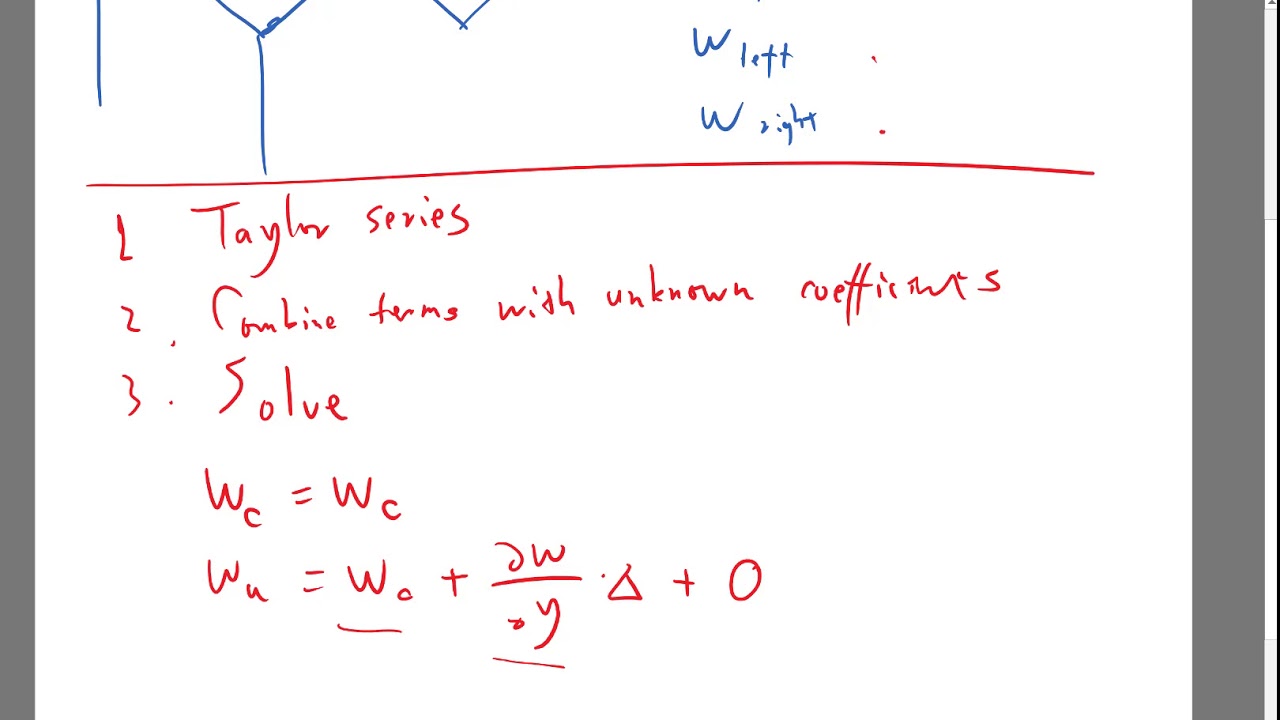 W left
W right
1 Taylor series
2. Combine terms with unknown coefficients
3. Solve
W_c = W_c
W_u = W_c + ∂W/∂y · Δ + O